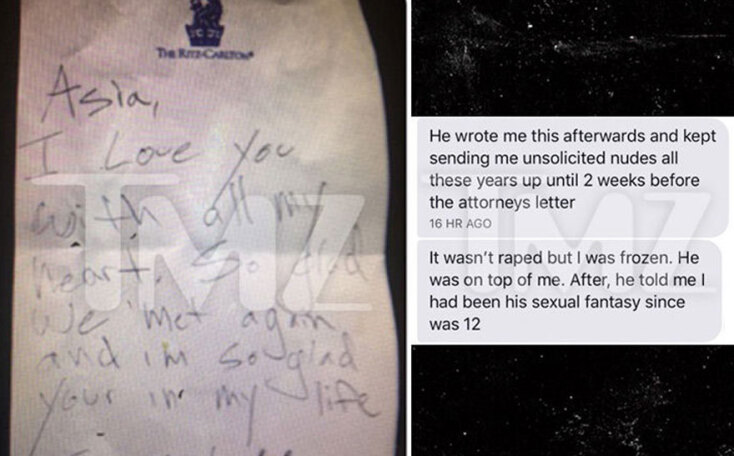 THE RITZ-CARLTON®
Asia,
I Love you
with all my
heart. So glad
we met again
and im so glad
your in my life
TMZ
He wrote me this afterwards and kept
sending me unsolicited nudes all
these years up until 2 weeks before
the attorneys letter
16 HR AGO
It wasn't raped but I was frozen. He
was on top of me. After, he told me I
had been his sexual fantasy since
was 12
TMZ